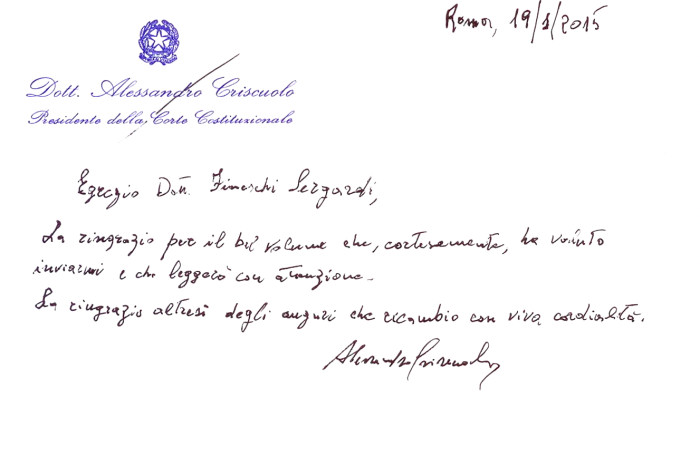 Roma, 19/1/2015
Dott. Alessandro Criscuolo
Presidente della Corte Costituzionale
Egregio Dott. Fineschi Sergardi,
La ringrazio per il bel volume che, cortesemente, ha voluto
inviarmi e che leggerò con attenzione.
La ringrazio altresì degli auguri che ricambio con viva cordialità.
Alessandro Criscuolo